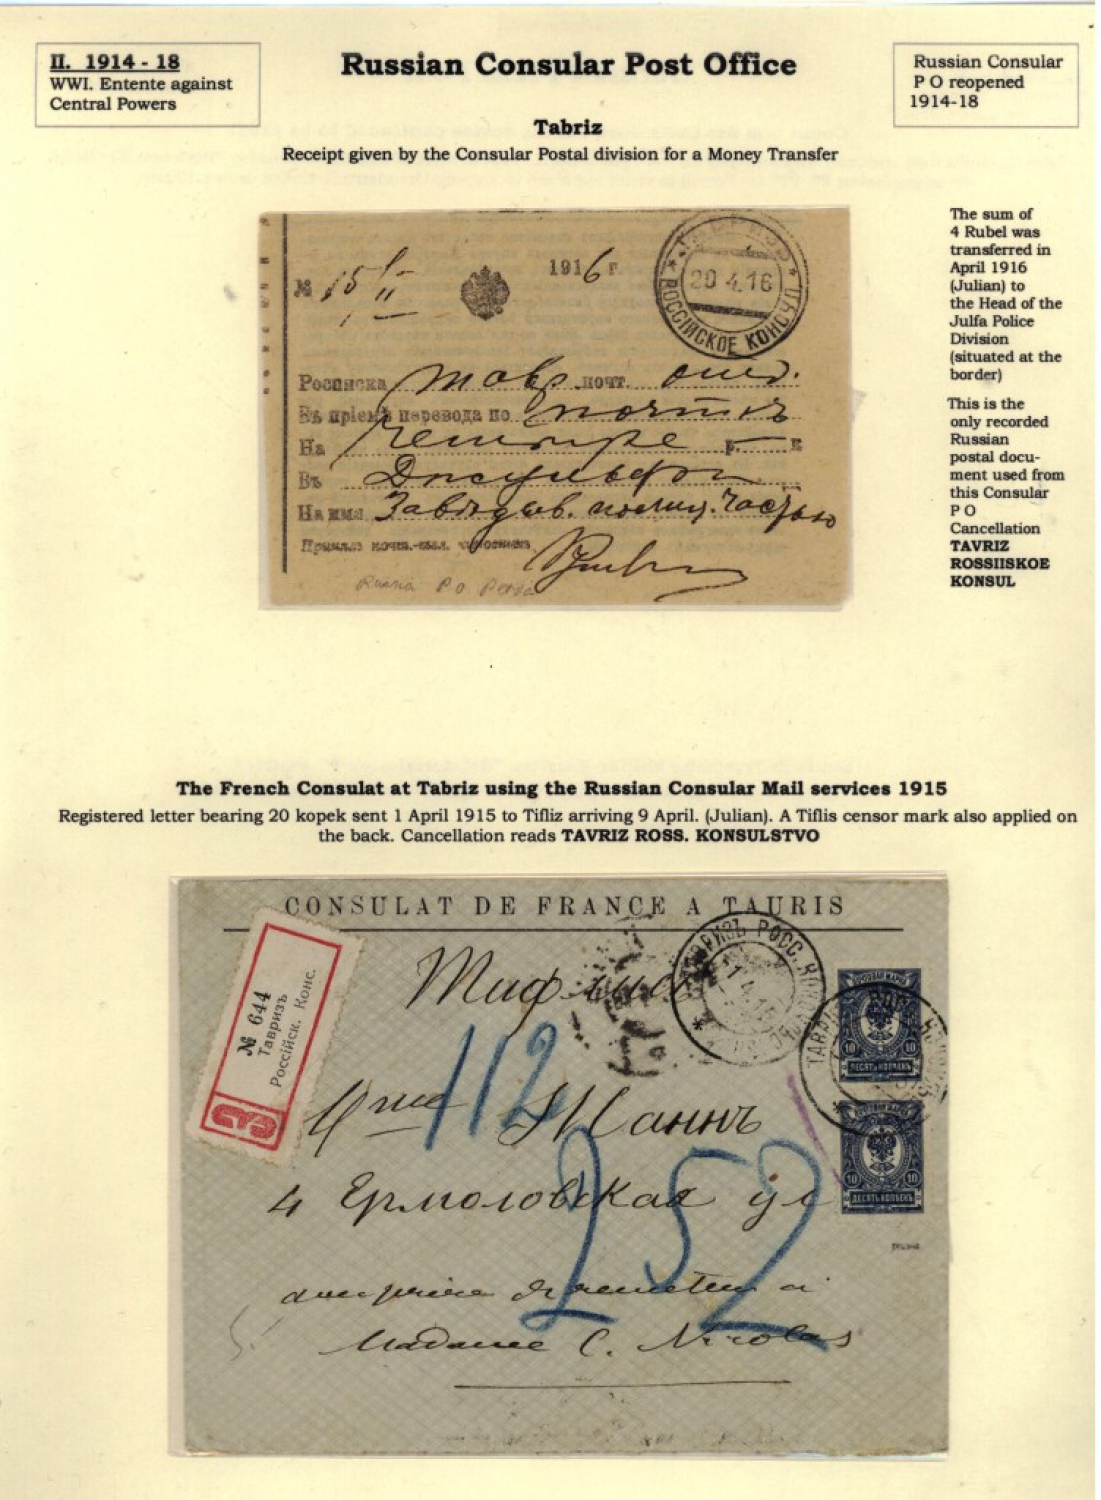 II. 1914 - 18
WWI. Entente against
Central Powers
Russian Consular Post Office
Russian Consular
P O reopened
1914-18
Tabriz
Receipt given by the Consular Postal division for a Money Transfer
The sum of
4 Rubel was
transferred in
April 1916
(Julian) to
the Head of the
Julfa Police
Division
(situated at the
border)
This is the
only recorded
Russian
postal docu-
ment used from
this Consular
P O
Cancellation
TAVRIZ
ROSSIISKOE
KONSUL
№ 15
1916 г
ТАВРИЗЪ
20 4.16
РОССІЙСКОЕ КОНСУЛ
Росписка Тавр. почт. отд.
Въ пріемѣ перевода по почтѣ
На Четыре р. — к
Въ Джульфу
На имя Завѣдыв. полиц. частью
Russia P.O. Persia
The French Consulat at Tabriz using the Russian Consular Mail services 1915
Registered letter bearing 20 kopek sent 1 April 1915 to Tifliz arriving 9 April. (Julian). A Tiflis censor mark also applied on
the back. Cancellation reads TAVRIZ ROSS. KONSULSTVO
CONSULAT DE FRANCE A TAURIS
ТАВРИЗЪ РОСС. КОНСУЛЬСТВО
1 4 15
Тифлисъ
№ 644
Тавризъ
Россійск. Конс.
З
112
Mme Жаннъ
4 Ермоловская ул
252
10 10
ДЕСЯТЬ КОПѢЕКЪ
10 10
ДЕСЯТЬ КОПѢЕКЪ
avec prière de remettre à
Madame C. Nicolas